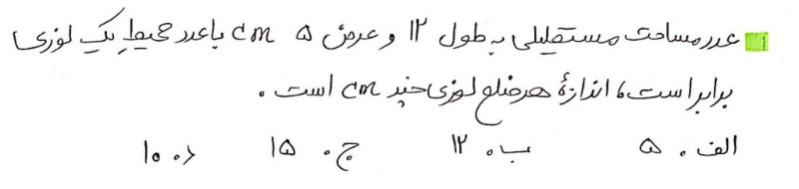 عدد مساحت مستطیلی به طول ۱۲ و عرض ۵ cm با عدد محیط یک لوزی
برابر است، اندازهٔ هر ضلع لوزی چند cm است.
الف. ۵ ب. ۱۲ ج. ۱۵ د. ۱۰